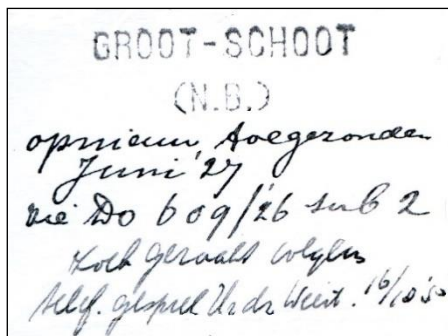 GROOT-SCHOOT
(N.B.)
opnieuw toegezonden
Juni '27
zie Do 609/'26 sub 2
zoek geraakt volgens
telef. gesprek Weert. 16/10 '50